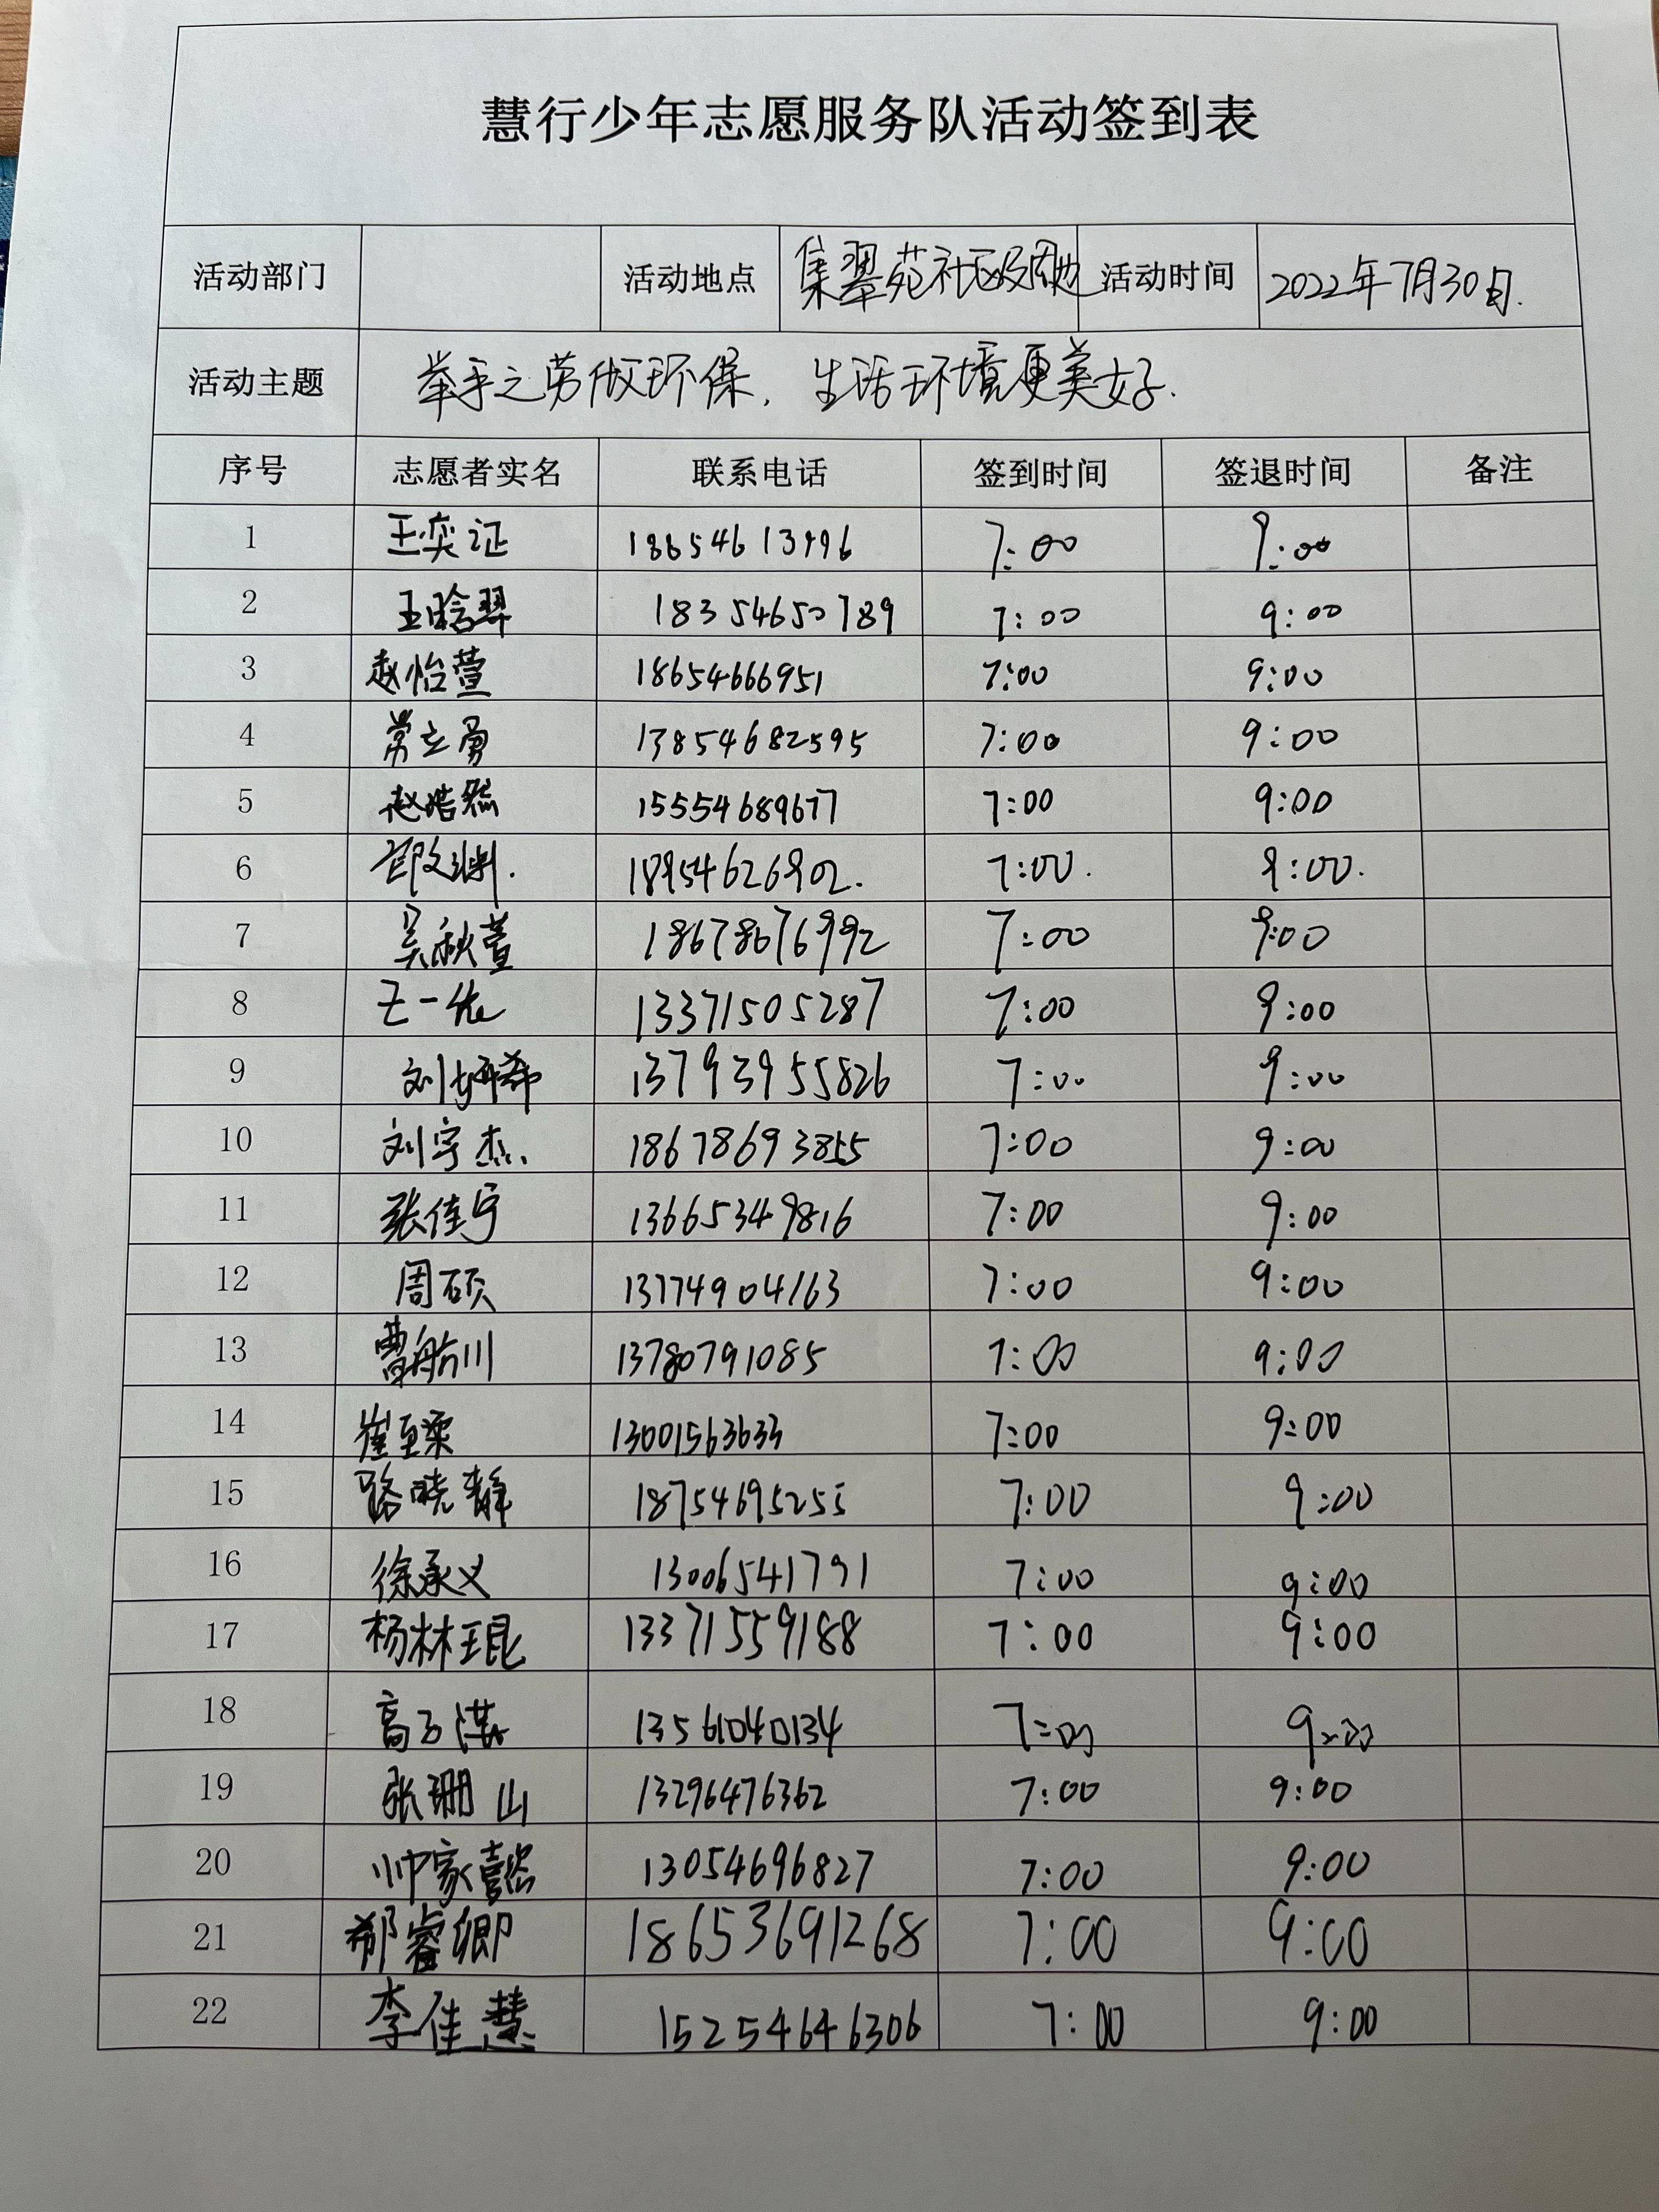 慧行少年志愿服务队活动签到表
活动部门 活动地点 集翠苑社区及周边 活动时间 2022年7月30日.
活动主题 举手之劳做环保, 生活环境更美好.
序号 志愿者实名 联系电话 签到时间 签退时间 备注
1 王奕证 7:00 9:00
2 王晗翠 18354650789 7:00 9:00
3 赵怡萱 18654666951 7:00 9:00
4 常立勇 13854682595 7:00 9:00
5 赵浩然 15554689677 7:00 9:00
6 18954626902. 7:00. 9:00.
7 吴秋萱 18678676992 7:00 9:00
8 王一依 13371505287 7:00 9:00
9 刘妍希 13793955826 7:00 9:00
10 刘宇杰 18678693855 7:00 9:00
11 张佳宁 13665349816 7:00 9:00
12 周硕 13774904163 7:00 9:00
13 曹舶川 13780791085 7:00 9:00
14 崔至柔 13001563633 7:00 9:00
15 路晓静 18754695255 7:00 9:00
16 徐承义 13006541791 7:00 9:00
17 杨林琨 13371559188 7:00 9:00
18 13561040134 7:00 9:00
19 张珊山 13296476362 7:00 9:00
20 帅家懿 13054696827 7:00 9:00
21 郗睿卿 18653691268 7:00 9:00
22 李佳慧 15254646306 7:00 9:00